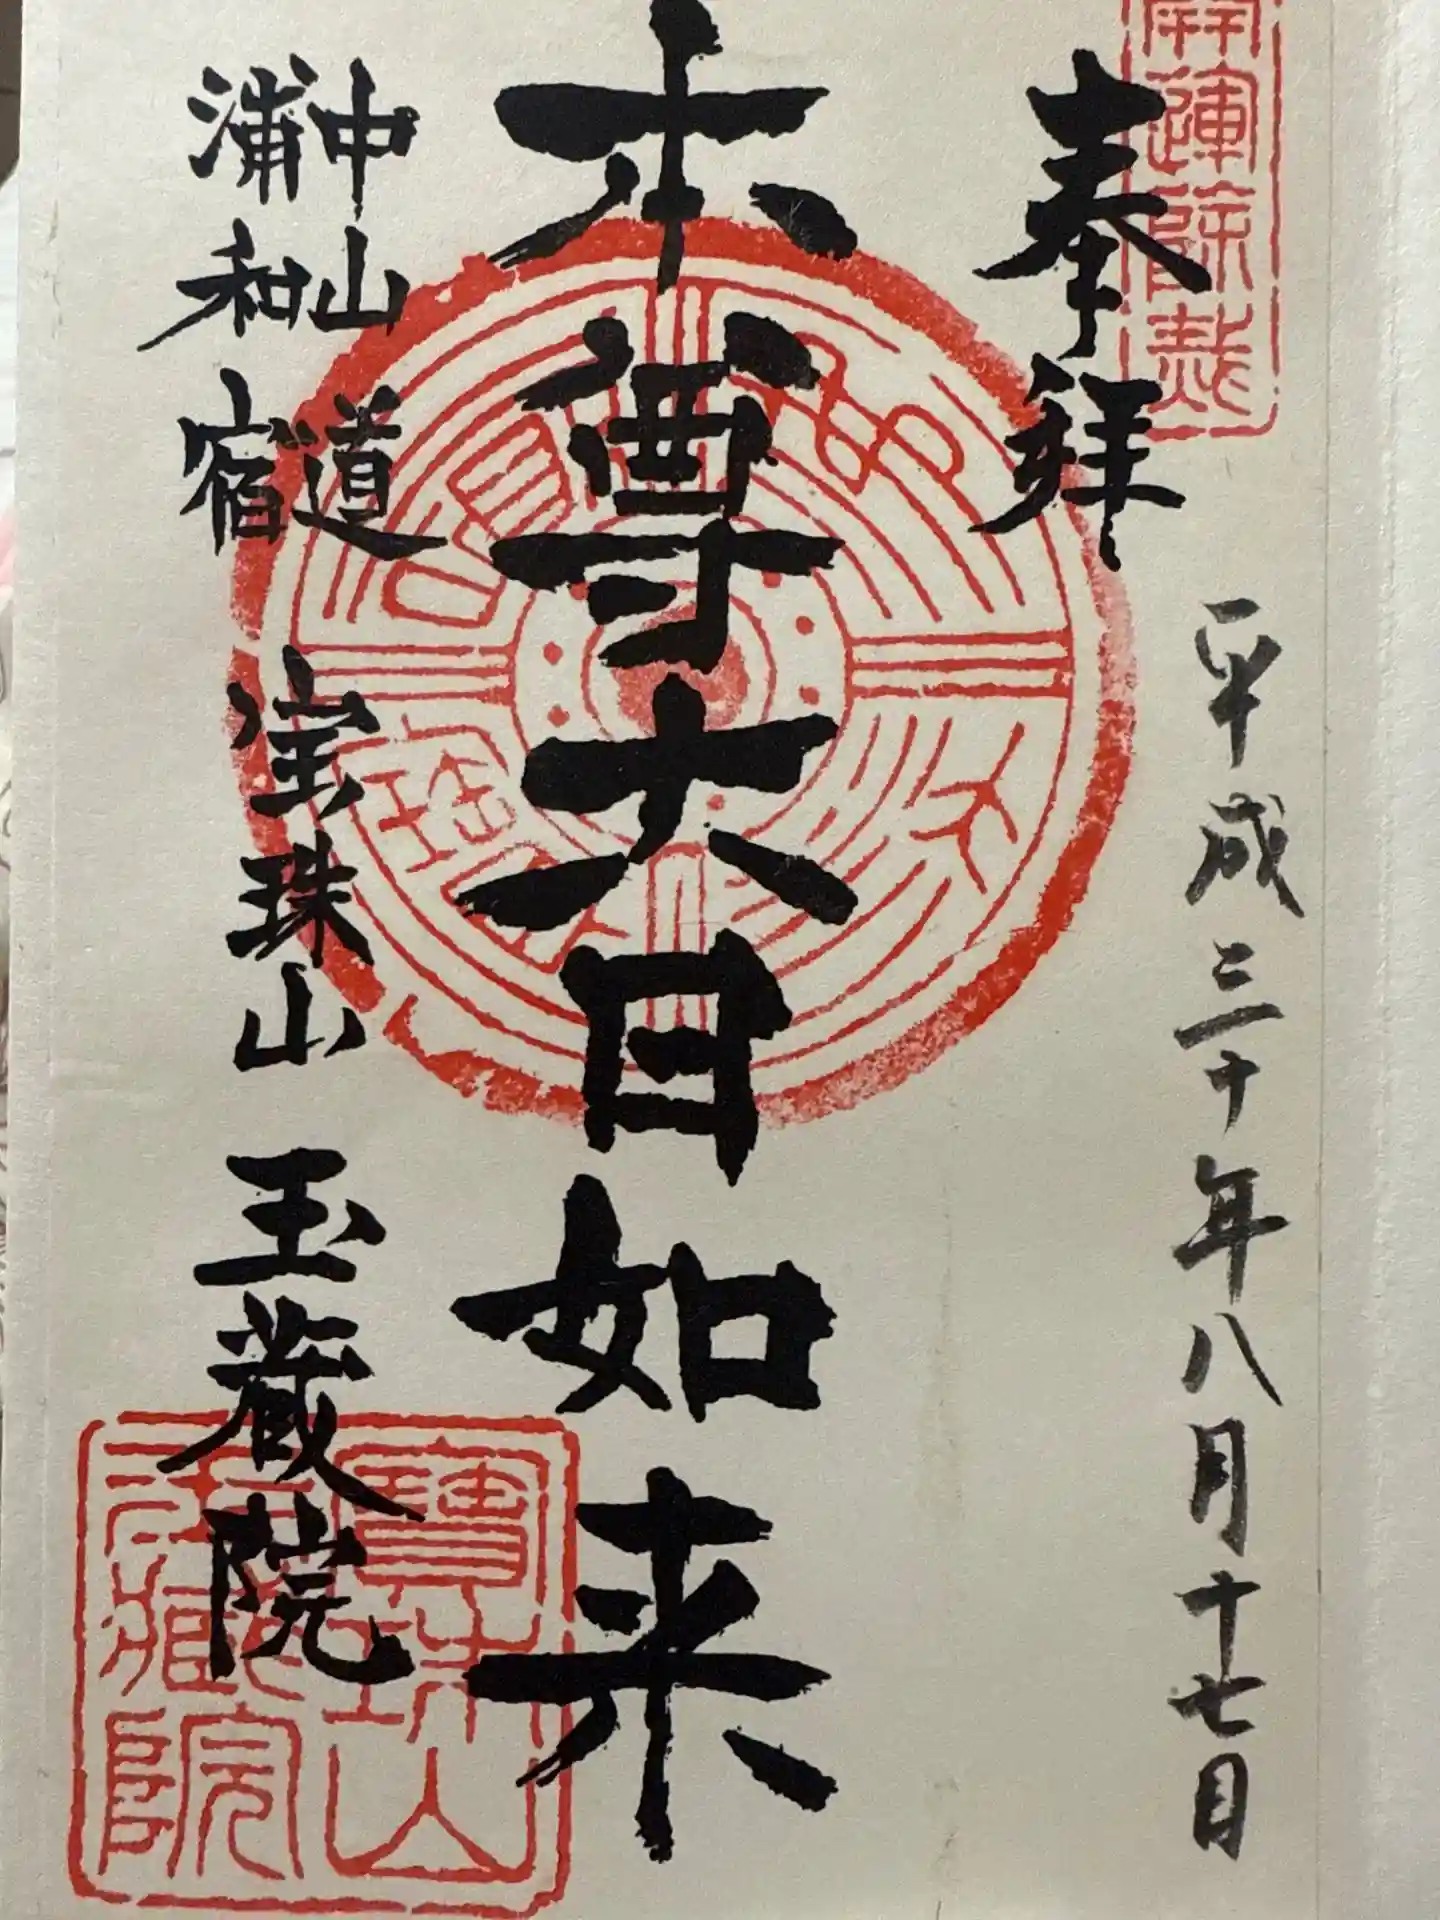 開運除葬
奉拝
平成三十年八月十七日
本尊大日如来
中山道
浦和宿
宝珠山 玉蔵院
寶珠山
玉藏院